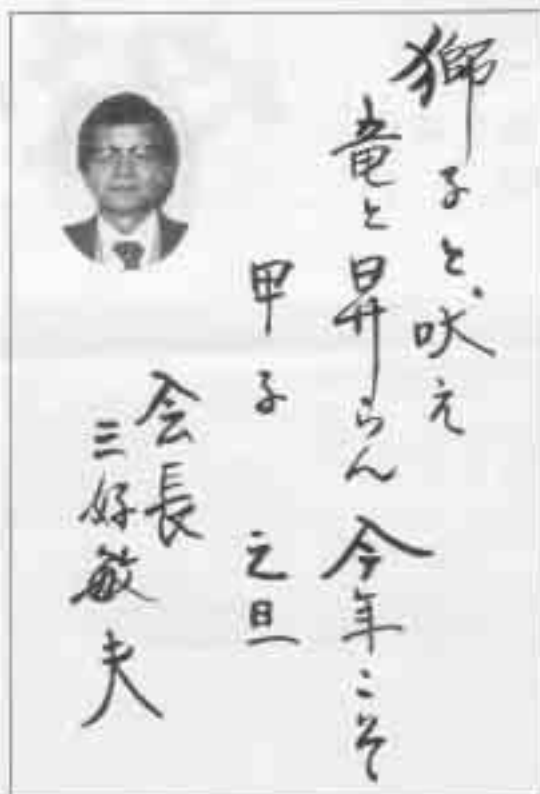 獅子と吠え
竜と昇らん今年こそ
甲子 元旦
会長
三好敏夫